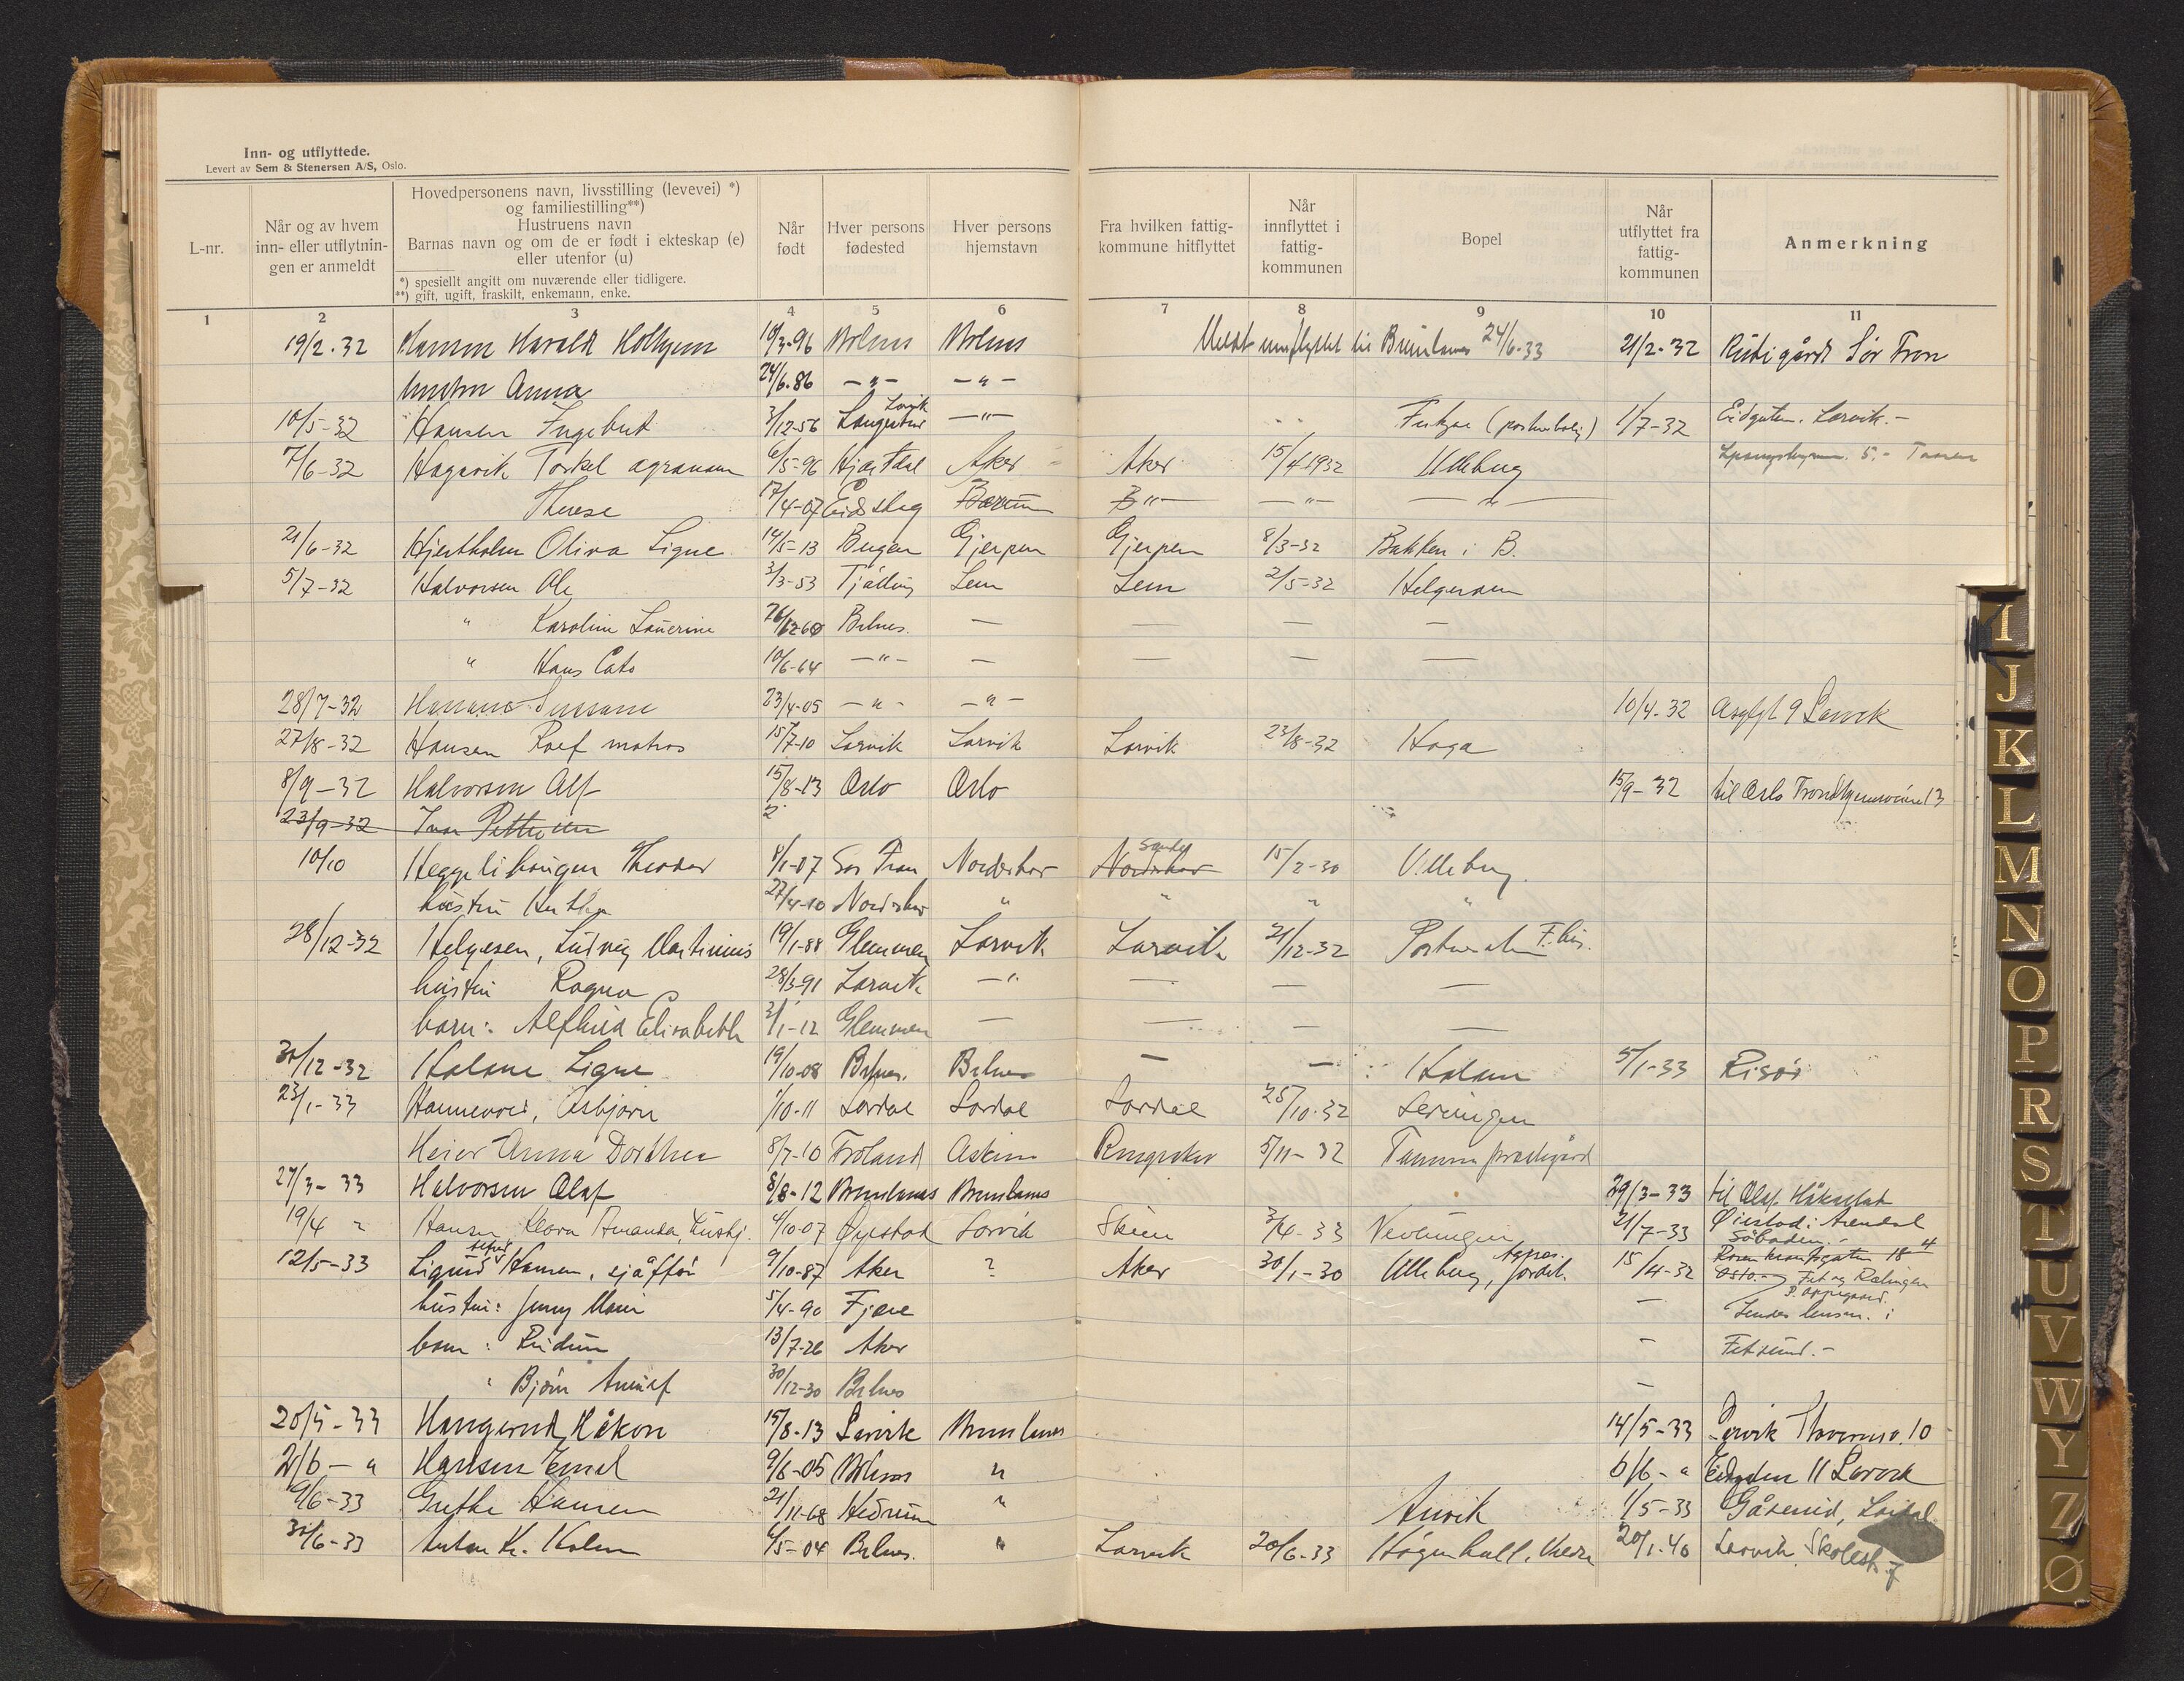 Inn- og utflyttede.
Levert av Sem & Stenersen A/S, Oslo.
L-nr.
Når og av hvem inn- eller utflytnin-gen er anmeldt
Hovedpersonens navn, livsstilling (levevei) *) og familiestilling**) Hustruens navn Barnas navn og om de er født i ekteskap (e) eller utenfor (u)
*) spesiellt angitt om nuværende eller tidligere.
**) gift, ugift, fraskilt, enkemann, enke.
Når født
Hver persons fødested
Hver persons hjemstavn
Fra hvilken fattig-kommune hitflyttet
Når innflyttet i fattig-kommunen
Bopel
Når utflyttet fra fattig-kommunen
Anmerkning
1 2 3 4 5 6 7 8 9 10 11
19/2-32 Harald 10/3-96 Brlnes Brlnes Meldt til Brunlanes 24/6-33 21/2-32 Sør Fron
hustru Anna 24/6-86 -"- -"-
10/5-32 Hansen 3/12-56 Langestrand Larvik -"- 1/7-32 Larvik.-
7/6-32 Hagevik Torkel agronom 6/5-96 Hjartdal Aker Aker 15/4 1932 Ulleberg
Therese 17/4-07 Eidskog Bærum -"- -"-
21/6-32 Hjertholm Oliva Signe 14/5-13 Gjerpen Gjerpen 8/3-32 Bakken i B.
5/7-32 Halvorsen Ole 3/3-53 Tjølling Sem Sem 2/5-32 Helgeroa
" Karoline 26/12-60 Brlnes. — — — —
" Hans Cato 10/6-64 -"- — — — —
28/7-32 23/4-05 -"- -"- 10/4-32 9 Larvik
27/8-32 Hansen Roef matros 15/7-10 Larvik Larvik Larvik 23/8-32 Haga
8/9-32 Halvorsen Alf 15/8-13 Oslo Oslo 15/9-32 til Oslo Trondhjemsveien 13
23/9-32 2
10/10 Heggelihaugen Theodor 4/1-07 Sør Fron Norderhov Norderhov 15/2-30 Ulleberg.
hustru 27/4-10 Norderhov " " " "
28/12-32 Helgesen, Ludvig Martinius 19/1-88 Glemmen Larvik Larvik 21/12-32
hustru Ragna 28/3-91 Larvik -"- — — —
barn: Alfhild Elisabeth 3/1-12 Glemmen — — — —
30/12-32 Holane Signe 19/10-08 Brlnes. Brlnes — — 5/1-33 Risør
23/1-33 Asbjørn 1/10-11 Lardal Lardal Lardal 25/10-32
Heier Anna Dorthea 8/7-10 Froland Askim Ringsaker 5/11-32 Tanum prestegård
27/3-33 Halvorsen Olaf 8/8-12 Brunlanes Brunlanes 29/3-33 til Olaf
19/4 " Hansen Klara Amanda, 4/10-07 Øyestad Larvik Skien 3/4-33 Nevlungen 21/7-33 Øiestad i Arendal
12/5-33 Sigurd Hansen, sjåffør 9/10-87 Aker ? Aker 30/1-30 Ulleberg, 15/4-32 Rosenkrantzgaten Oslo.- Fet og Rælingen
hustru: Jenny Marie 5/4-90 Fjære — Sendes lensm. i
barn: 13/7-26 Aker — Fetsund.-
" Bjørn 30/12-30 Brlnes —
20/5-33 Haugerud Håkon 15/8-13 Larvik Brunlanes 14/5-33 Larvik 10
2/6 - " Hansen 9/6-05 Brlnes " 6/6 - " 11 Larvik
9/6-33 Grethe Hansen 21/11-68 Hedrum " Anvik 1/5-33 Lardal
30/6-33 Anton K. Holm 6/5-04 Brlnes. " Larvik 20/6-33 20/1-40 Larvik Skolest. 7
I
J
K
L
M
N
O
P
R
S
T
U
V
W
Y
Z
Ø